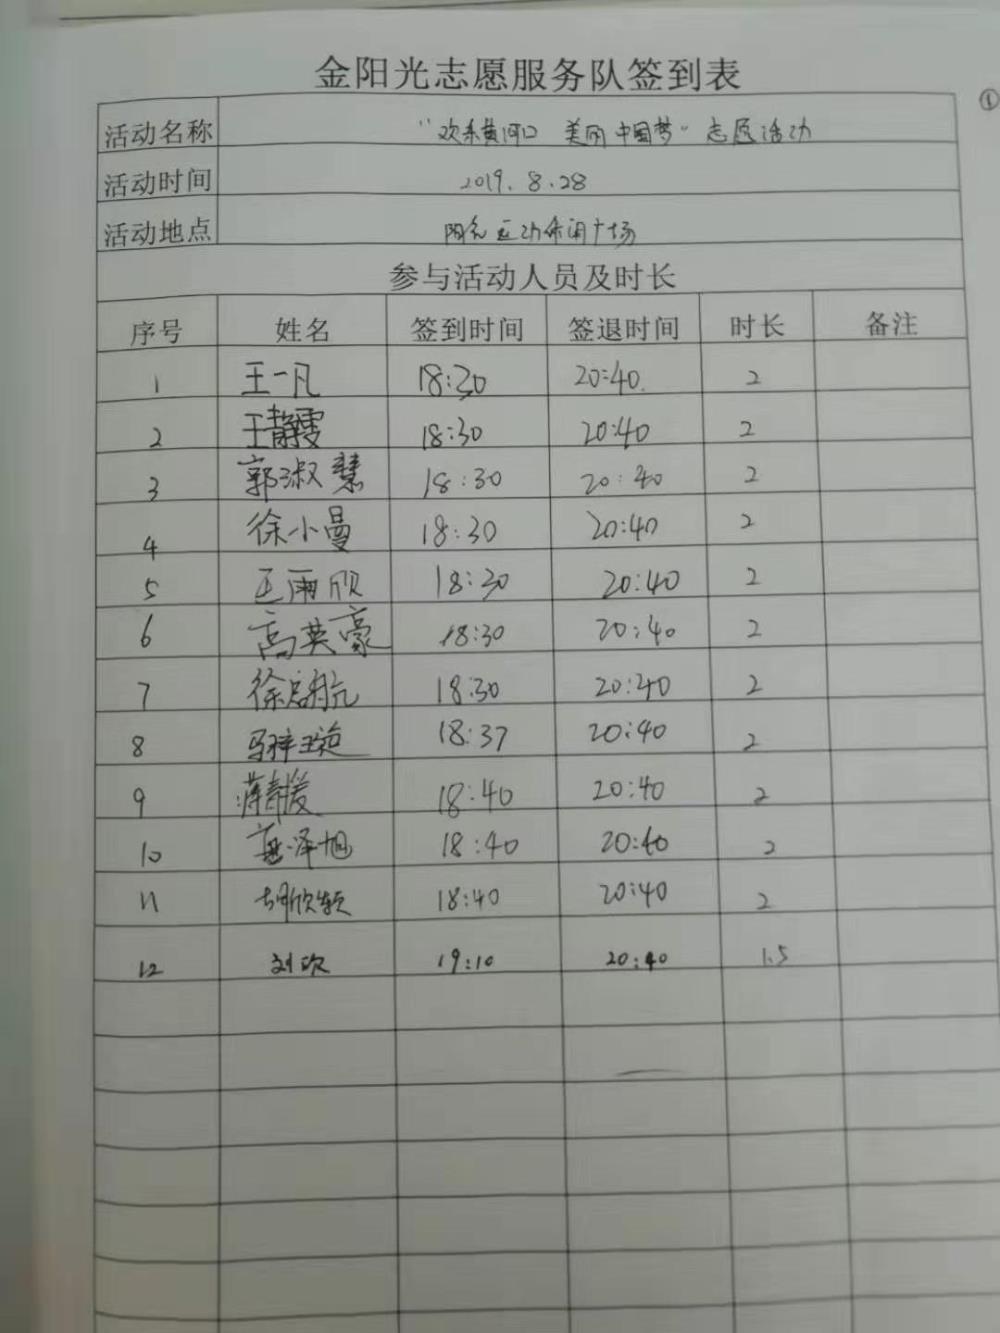 金阳光志愿服务队签到表
①
活动名称 "欢乐黄河口 美丽中国梦"志愿活动
活动时间 2019.8.28
活动地点 阳光运动休闲广场
参与活动人员及时长
序号 姓名 签到时间 签退时间 时长 备注
1 王一凡 18:30 20:40 2
2 王静雯 18:30 20:40 2
3 郭淑慧 18:30 20:40 2
4 徐小曼 18:30 20:40 2
5 王雨欣 18:30 20:40 2
6 高英豪 18:30 20:40 2
7 徐启航 18:30 20:40 2
8 18:37 20:40 2
9 18:40 20:40 2
10 泽旭 18:40 20:40 2
11 胡欣 18:40 20:40 2
12 刘欢 19:10 20:40 1.5